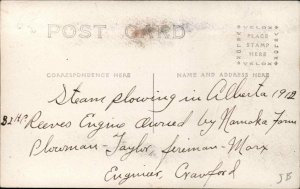 POST CARD
VELOX
PLACE
STAMP
HERE
VELOX
CORRESPONDENCE HERE
NAME AND ADDRESS HERE
Steam plowing in Alberta 1912
32 HP Reeves Engine owned by Namaka Farms
Plowman - Taylor, fireman - Marx
Enginier, Crawford